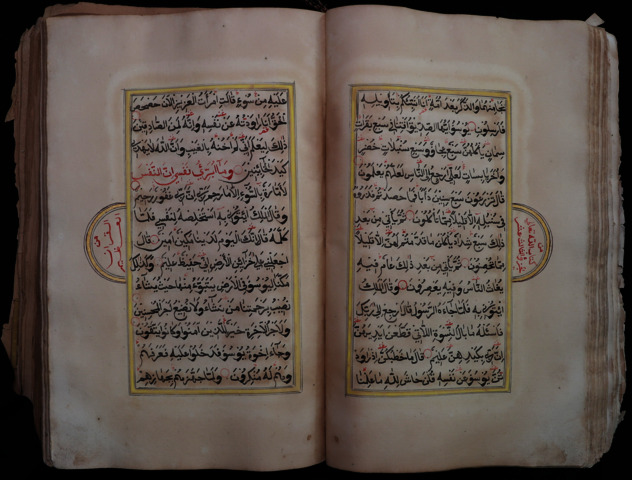 نجا منهما وادكر بعد امة انا انبئكم بتأويله
فارسلون يوسف ايها الصديق افتنا في سبع بقرات
سمان يأكلهن سبع عجاف وسبع سنبلات خضر
واخر يابسات لعلي ارجع الى الناس لعلهم يعلمون
قال تزرعون سبع سنين دأبا فما حصدتم فذروه
في سنبله الا قليلا مما تأكلون ثم يأتي من بعد
ذلك سبع شداد يأكلن ما قدمتم لهن الا قليلا
مما تحصنون ثم يأتي من بعد ذلك عام فيه
يغاث الناس وفيه يعصرون وقال الملك
ائتوني به فلما جاءه الرسول قال ارجع الى ربك
فاسأله ما بال النسوة اللاتي قطعن ايديهن
ان ربي بكيدهن عليم قال ما خطبكن اذ راود
تن يوسف عن نفسه قلن حاش لله ما علمنا
عليه من سوء قالت امرأت العزيز الآن حصحص
الحق انا راودته عن نفسه وانه لمن الصادقين
ذلك ليعلم اني لم اخنه بالغيب وان الله لا يهدي
كيد الخائنين وما ابرئ نفسي ان النفس
لامارة بالسوء الا ما رحم ربي ان ربي غفور رحيم
وقال الملك ائتوني به استخلصه لنفسي فلما
كلمه قال انك اليوم لدينا مكين امين قال
اجعلني على خزائن الارض اني حفيظ عليم وكذلك
مكنا ليوسف في الارض يتبوأ منها حيث يشاء
نصيب برحمتنا من نشاء ولا نضيع اجر المحسنين
ولاجر الآخرة خير للذين امنوا وكانوا يتقون
وجاء اخوة يوسف فدخلوا عليه فعرفهم
وهم له منكرون ولما جهزهم بجهازهم